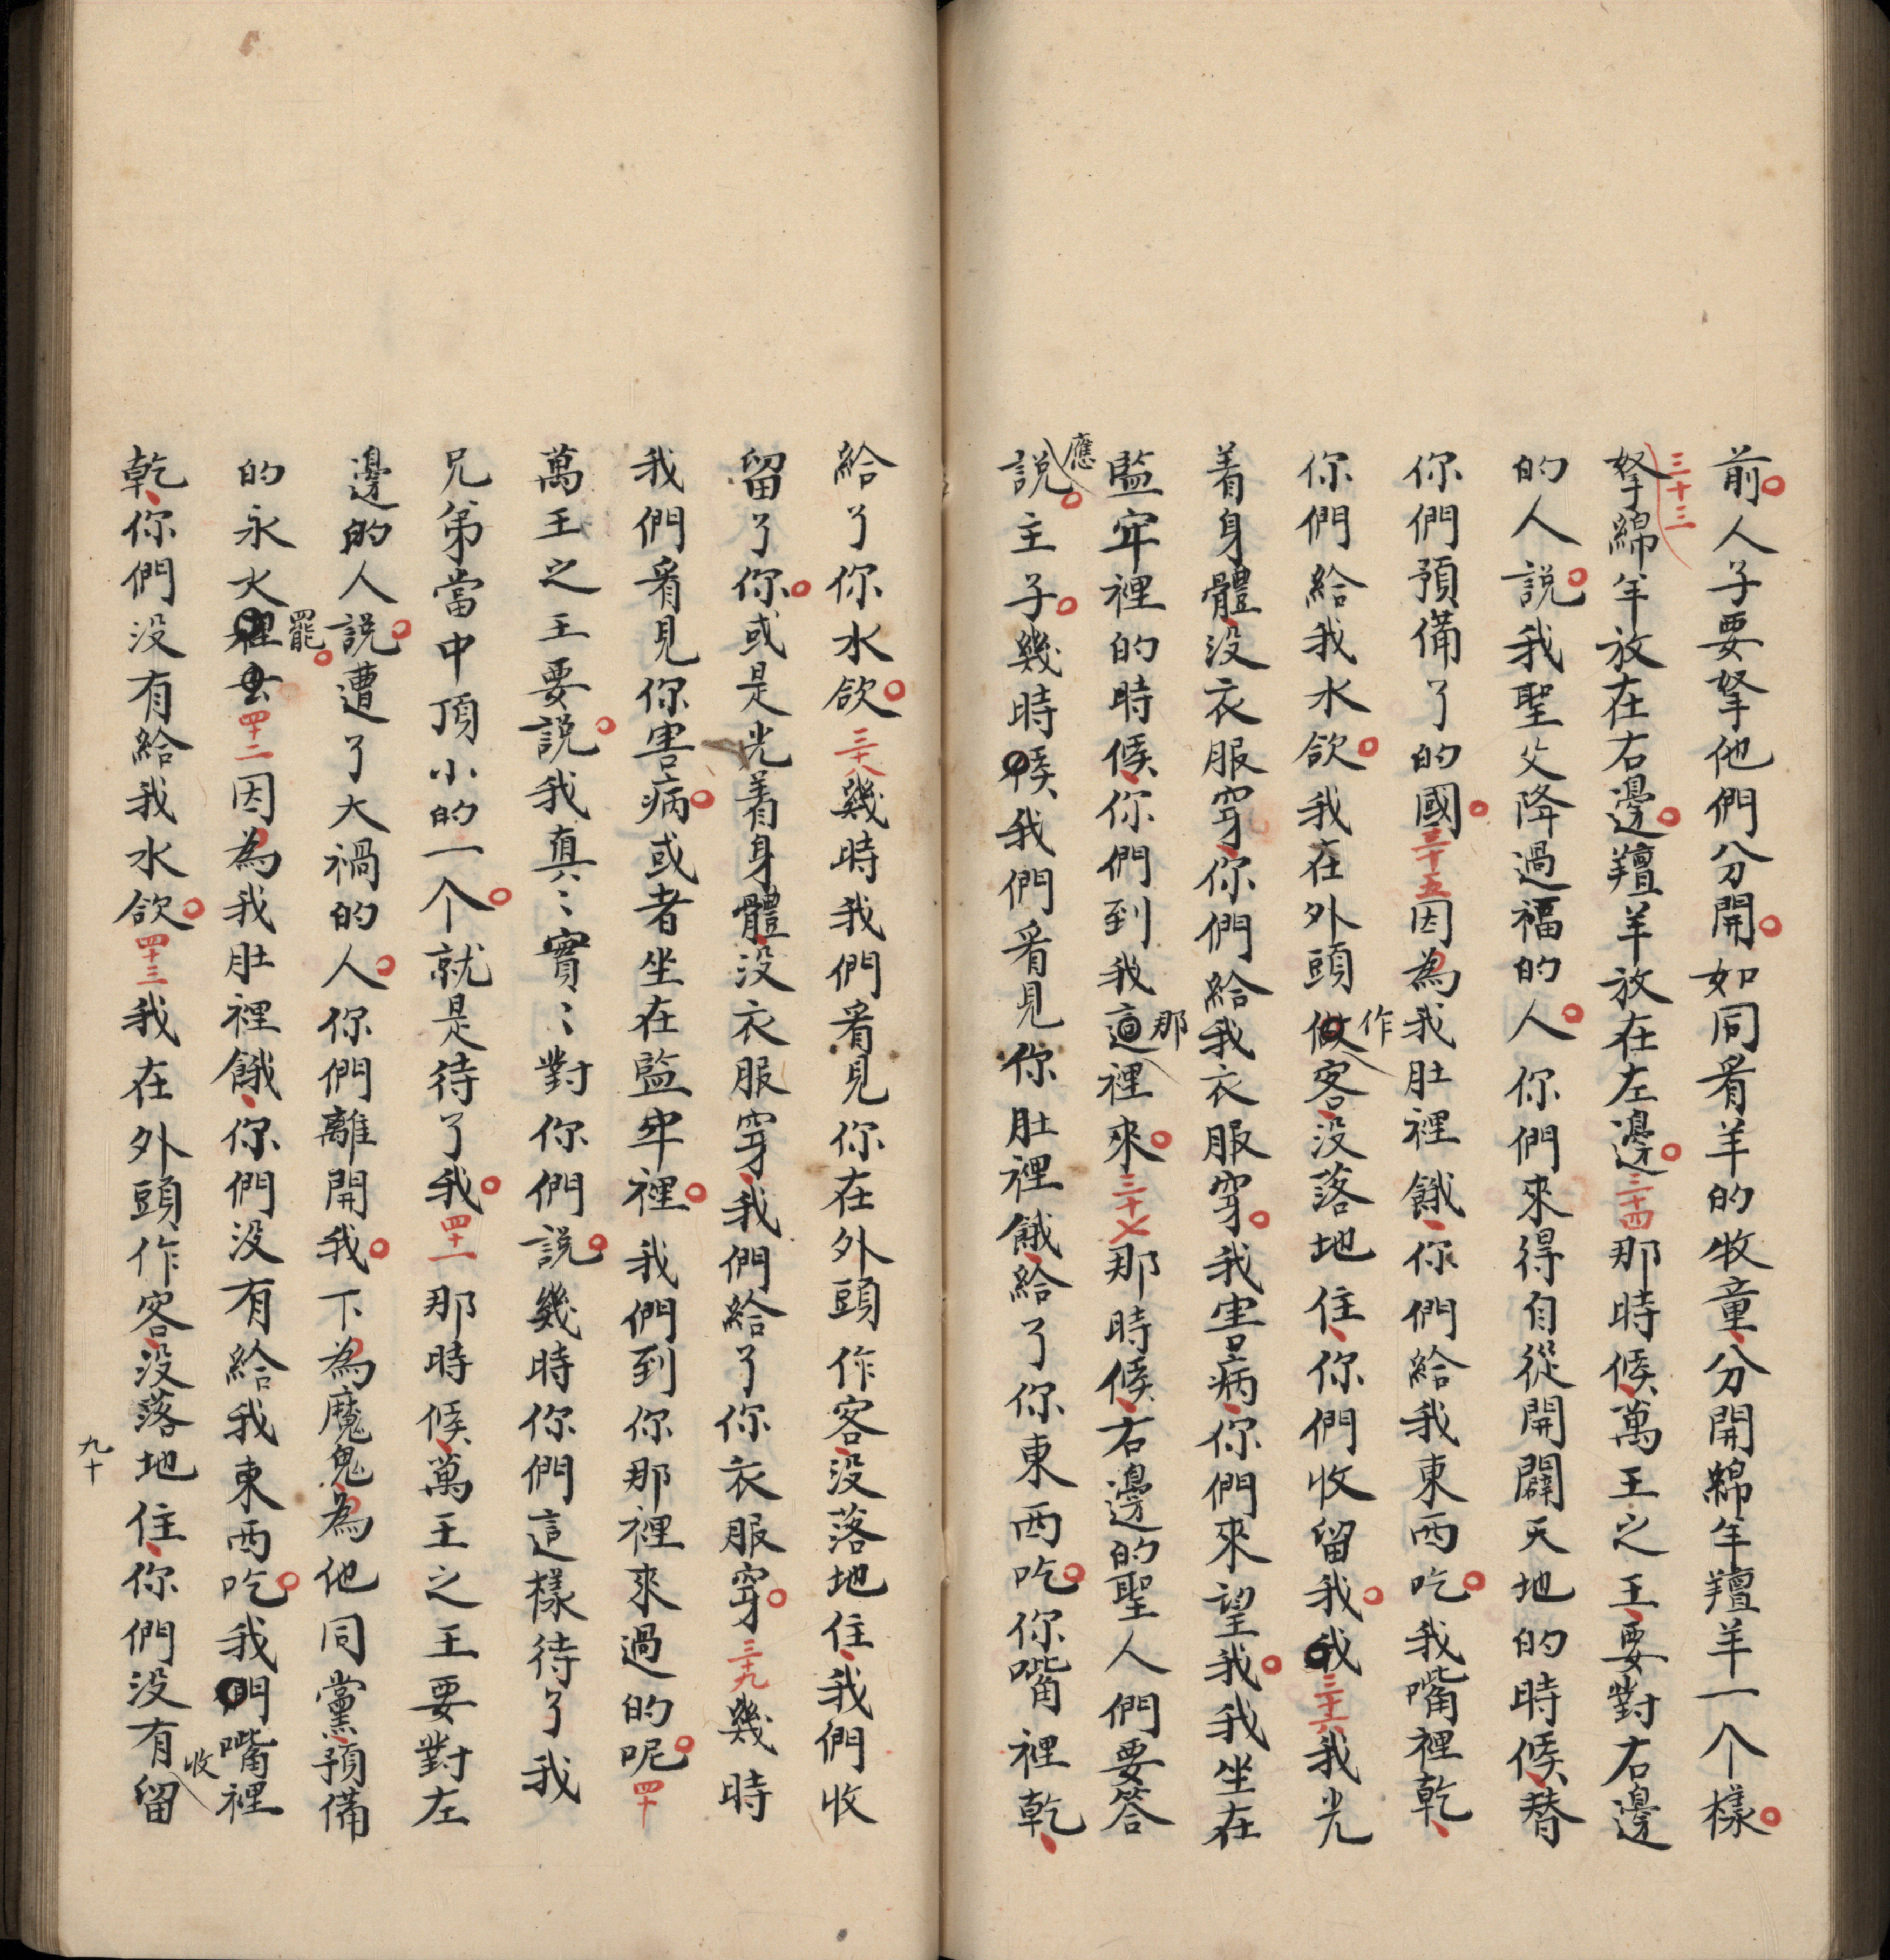 前人子要拏他們分開如同看羊的牧童分開綿羊羶羊一个樣
三十三
拏綿羊放在右邊羶羊放在左邊三十四那時候萬王之王要對右邊
的人說我聖父降過福的人你們來得自從開闢天地的時候替
你們預備了的國三十五因為我肚裡餓你們給我東西吃我嘴裡乾
你們給我水飲我在外頭做客没落地住你們收留我我三十六我光
作
着身體没衣服穿你們給我衣服穿我害病你們來望我我坐在
監牢裡的時候你們到我這裡來三十七那時候右邊的聖人們要答
那
應
說主子幾時候我們看見你肚裡餓給了你東西吃你嘴裡乾
給了你水飲三十八幾時我們看見你在外頭作客没落地住我們收
留了你或是光着身體没衣服穿我們給了你衣服穿三十九幾時
我們看見你害病或者坐在監牢裡我們到你那裡來過的呢四十
萬王之王要說我真〻實〻對你們說幾時你們這樣待了我
兄弟當中頂小的一个就是待了我四十一那時候萬王之王要對左
邊的人說遭了大禍的人你們離開我下為魔鬼為他同黨預備
罷
的永火裡去四十二因為我肚裡餓你們没有給我東西吃我們嘴裡
乾你們没有給我水飲四十三我在外頭作客没落地住你們没有留
收
九十